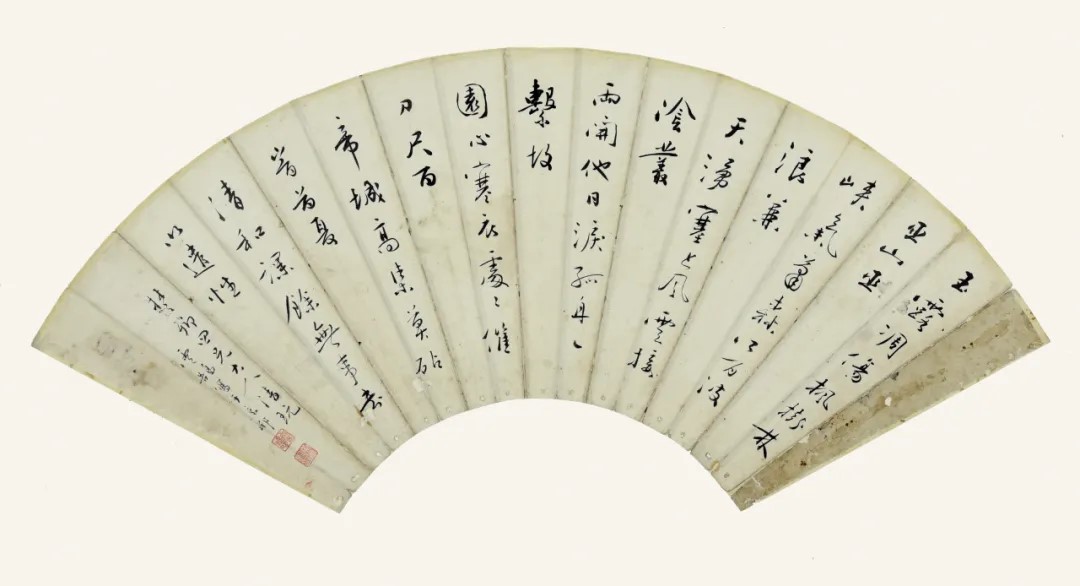 玉露凋傷楓樹林
巫山巫
峽氣蕭森江間波
浪兼
天湧塞上風雲接
陰叢
兩開他日淚孤舟一
繫故
園心寒衣處〻催
刀尺白
帝城高急莫砧
旹首夏
清和課餘無事書
以遣性
楚卿四兄大人清玩